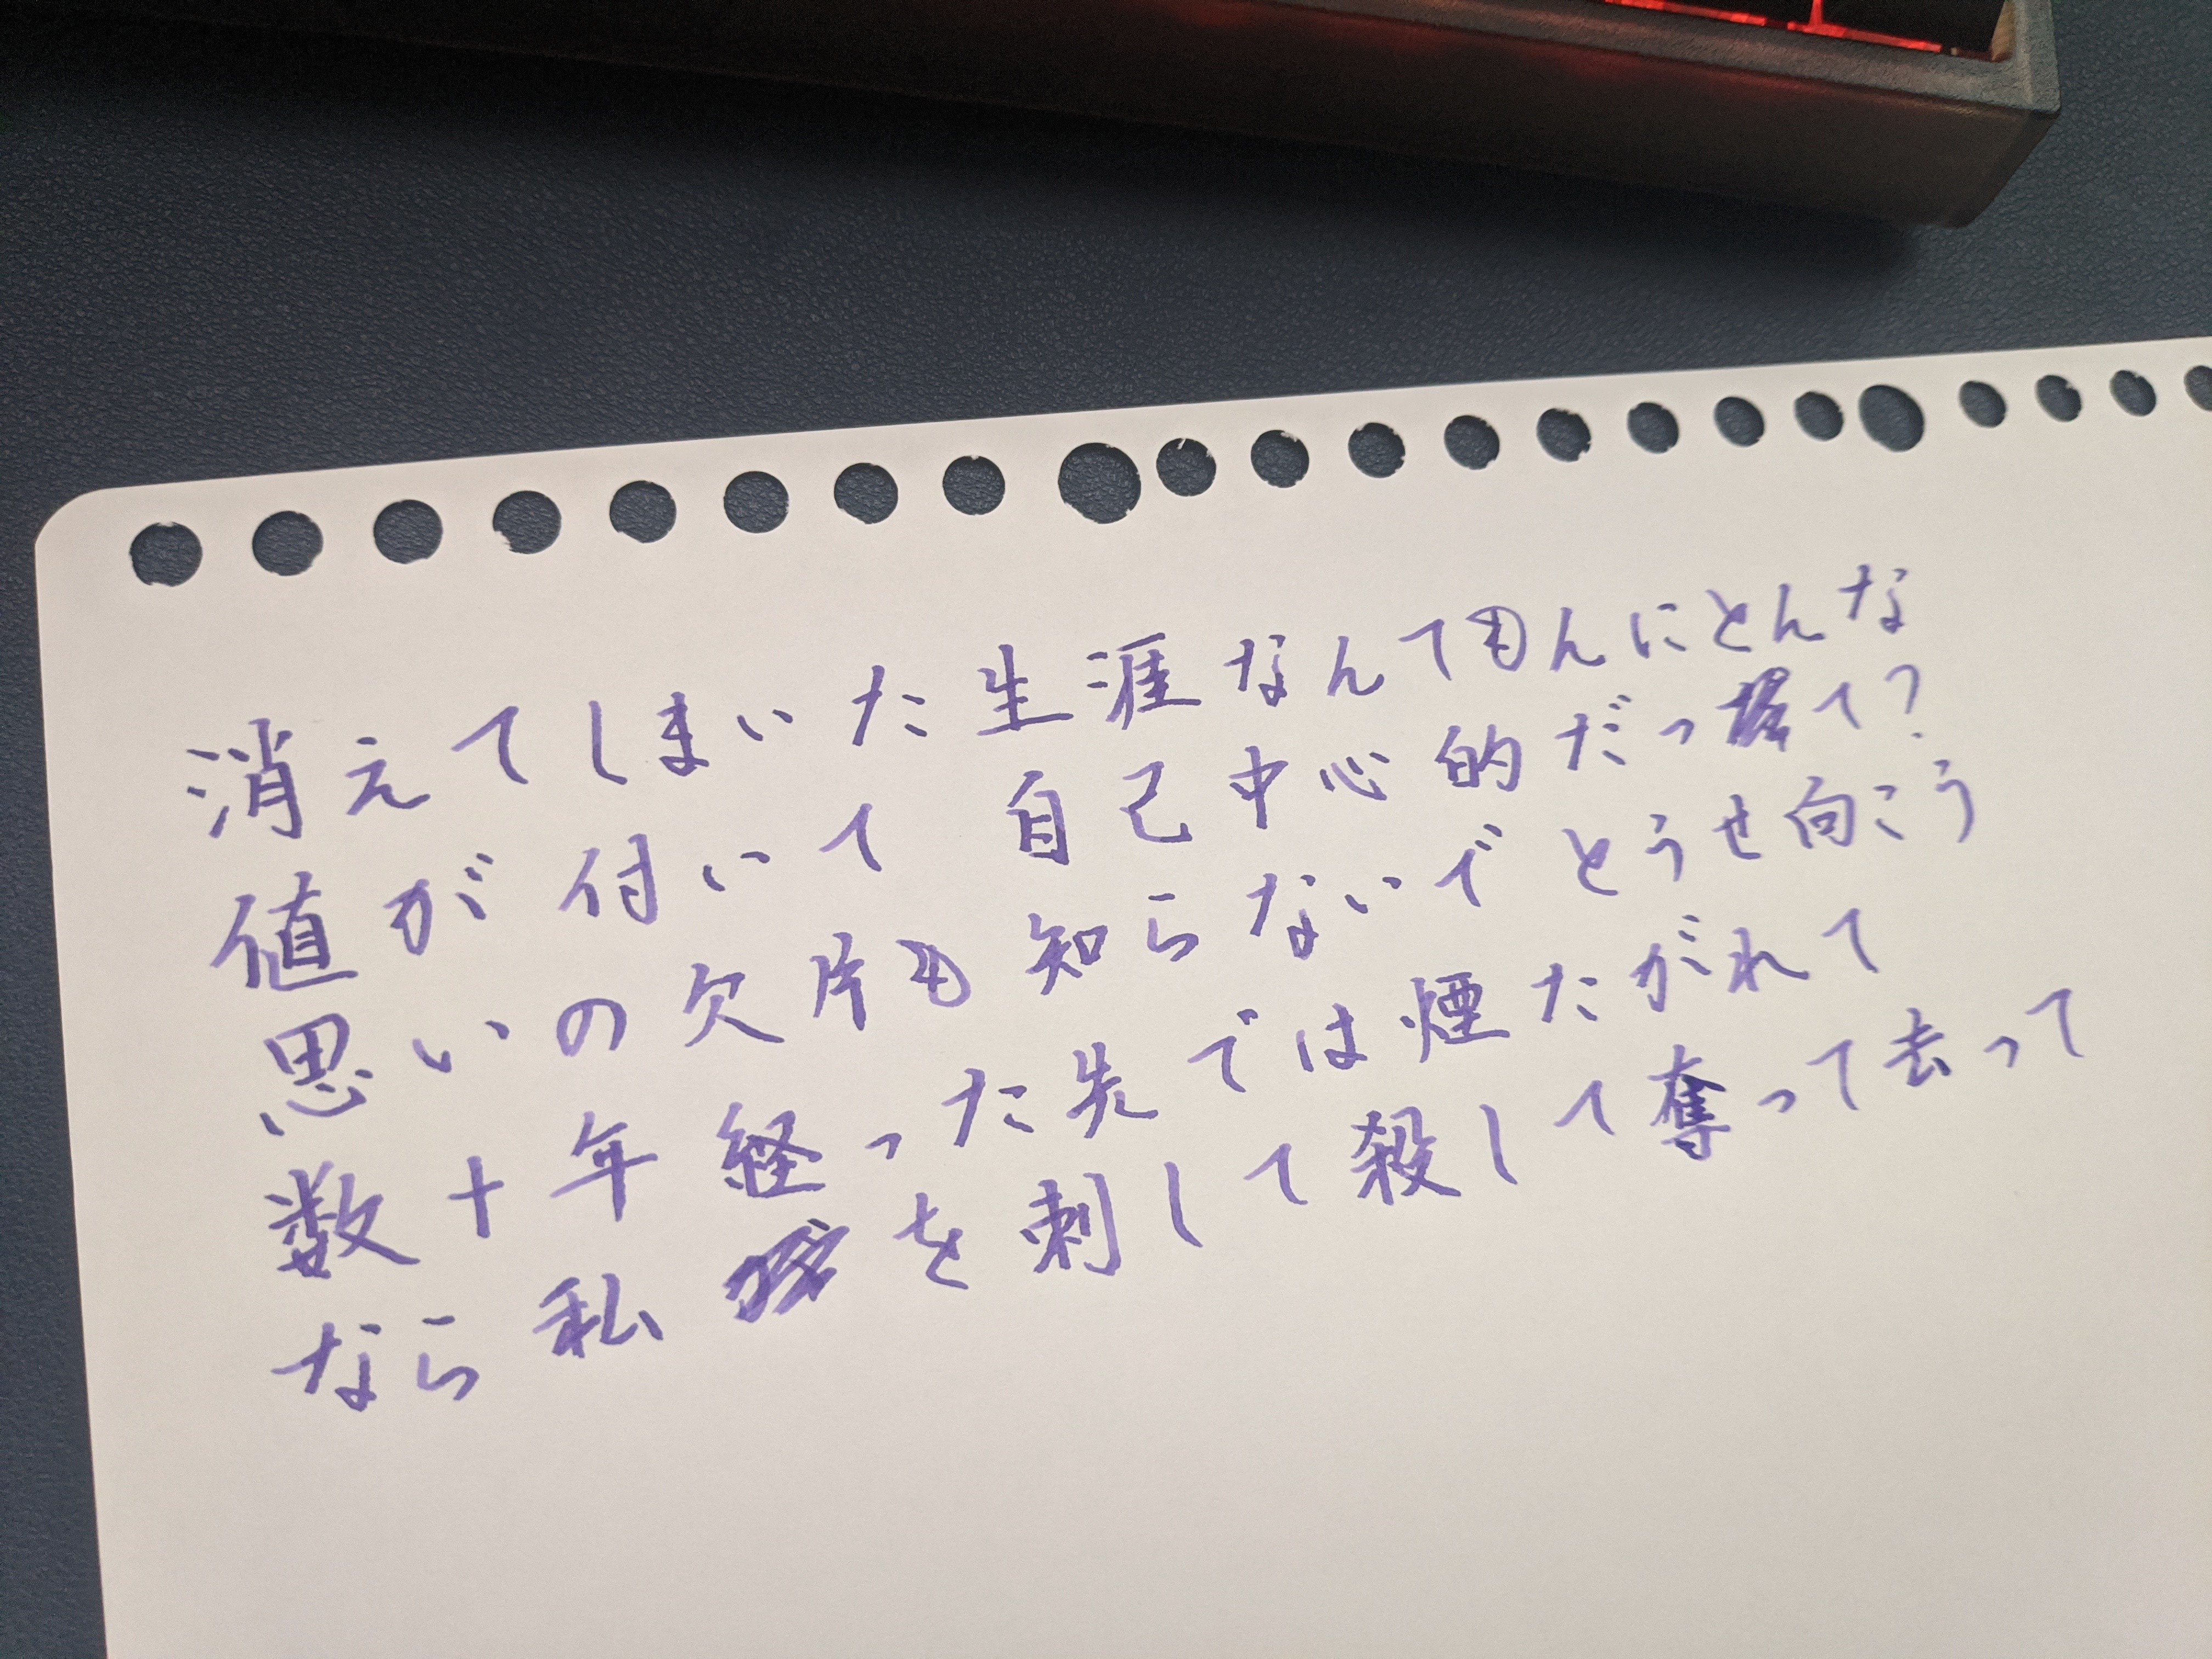 消えてしまいた生涯なんてもんにとんな
値が付いて 自己中心的だって?
思いの欠片も知らないで とうせ向こう
数十年経った先では煙たがれて
なら私を刺して殺して奪って去って